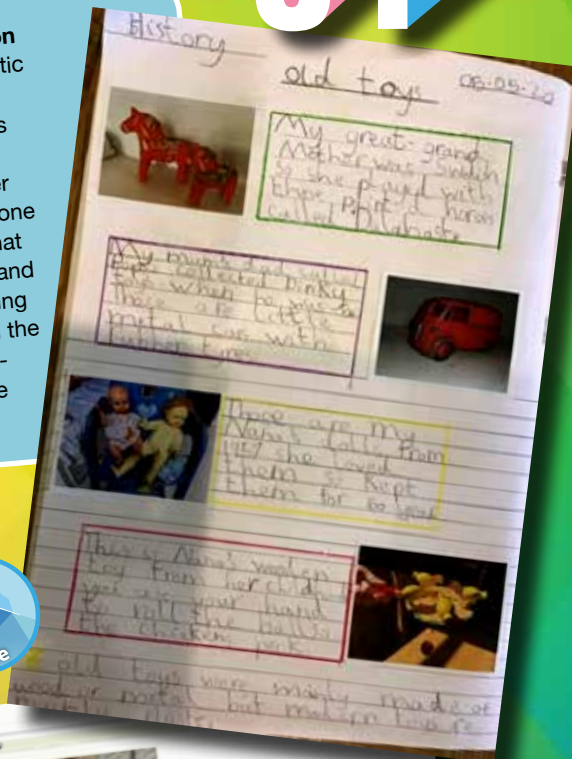 on
tic
s
er
one
at
and
ing
the
-
e
History
old toys
08-05-20
My great-grand
Mother was
so she played with
these horses
called
My mum's dad called
collected Dinky
when he was a
These are little
metal cars with
rubber tyres
These are my
Nana's dolls from
1957 she loved
them so kept
them for 60 years
This is Nana's wooden
toy from her
you use your hand
to roll the balls
the chickens peck
old toys were mainly made of
wood or metal but modern toys
e